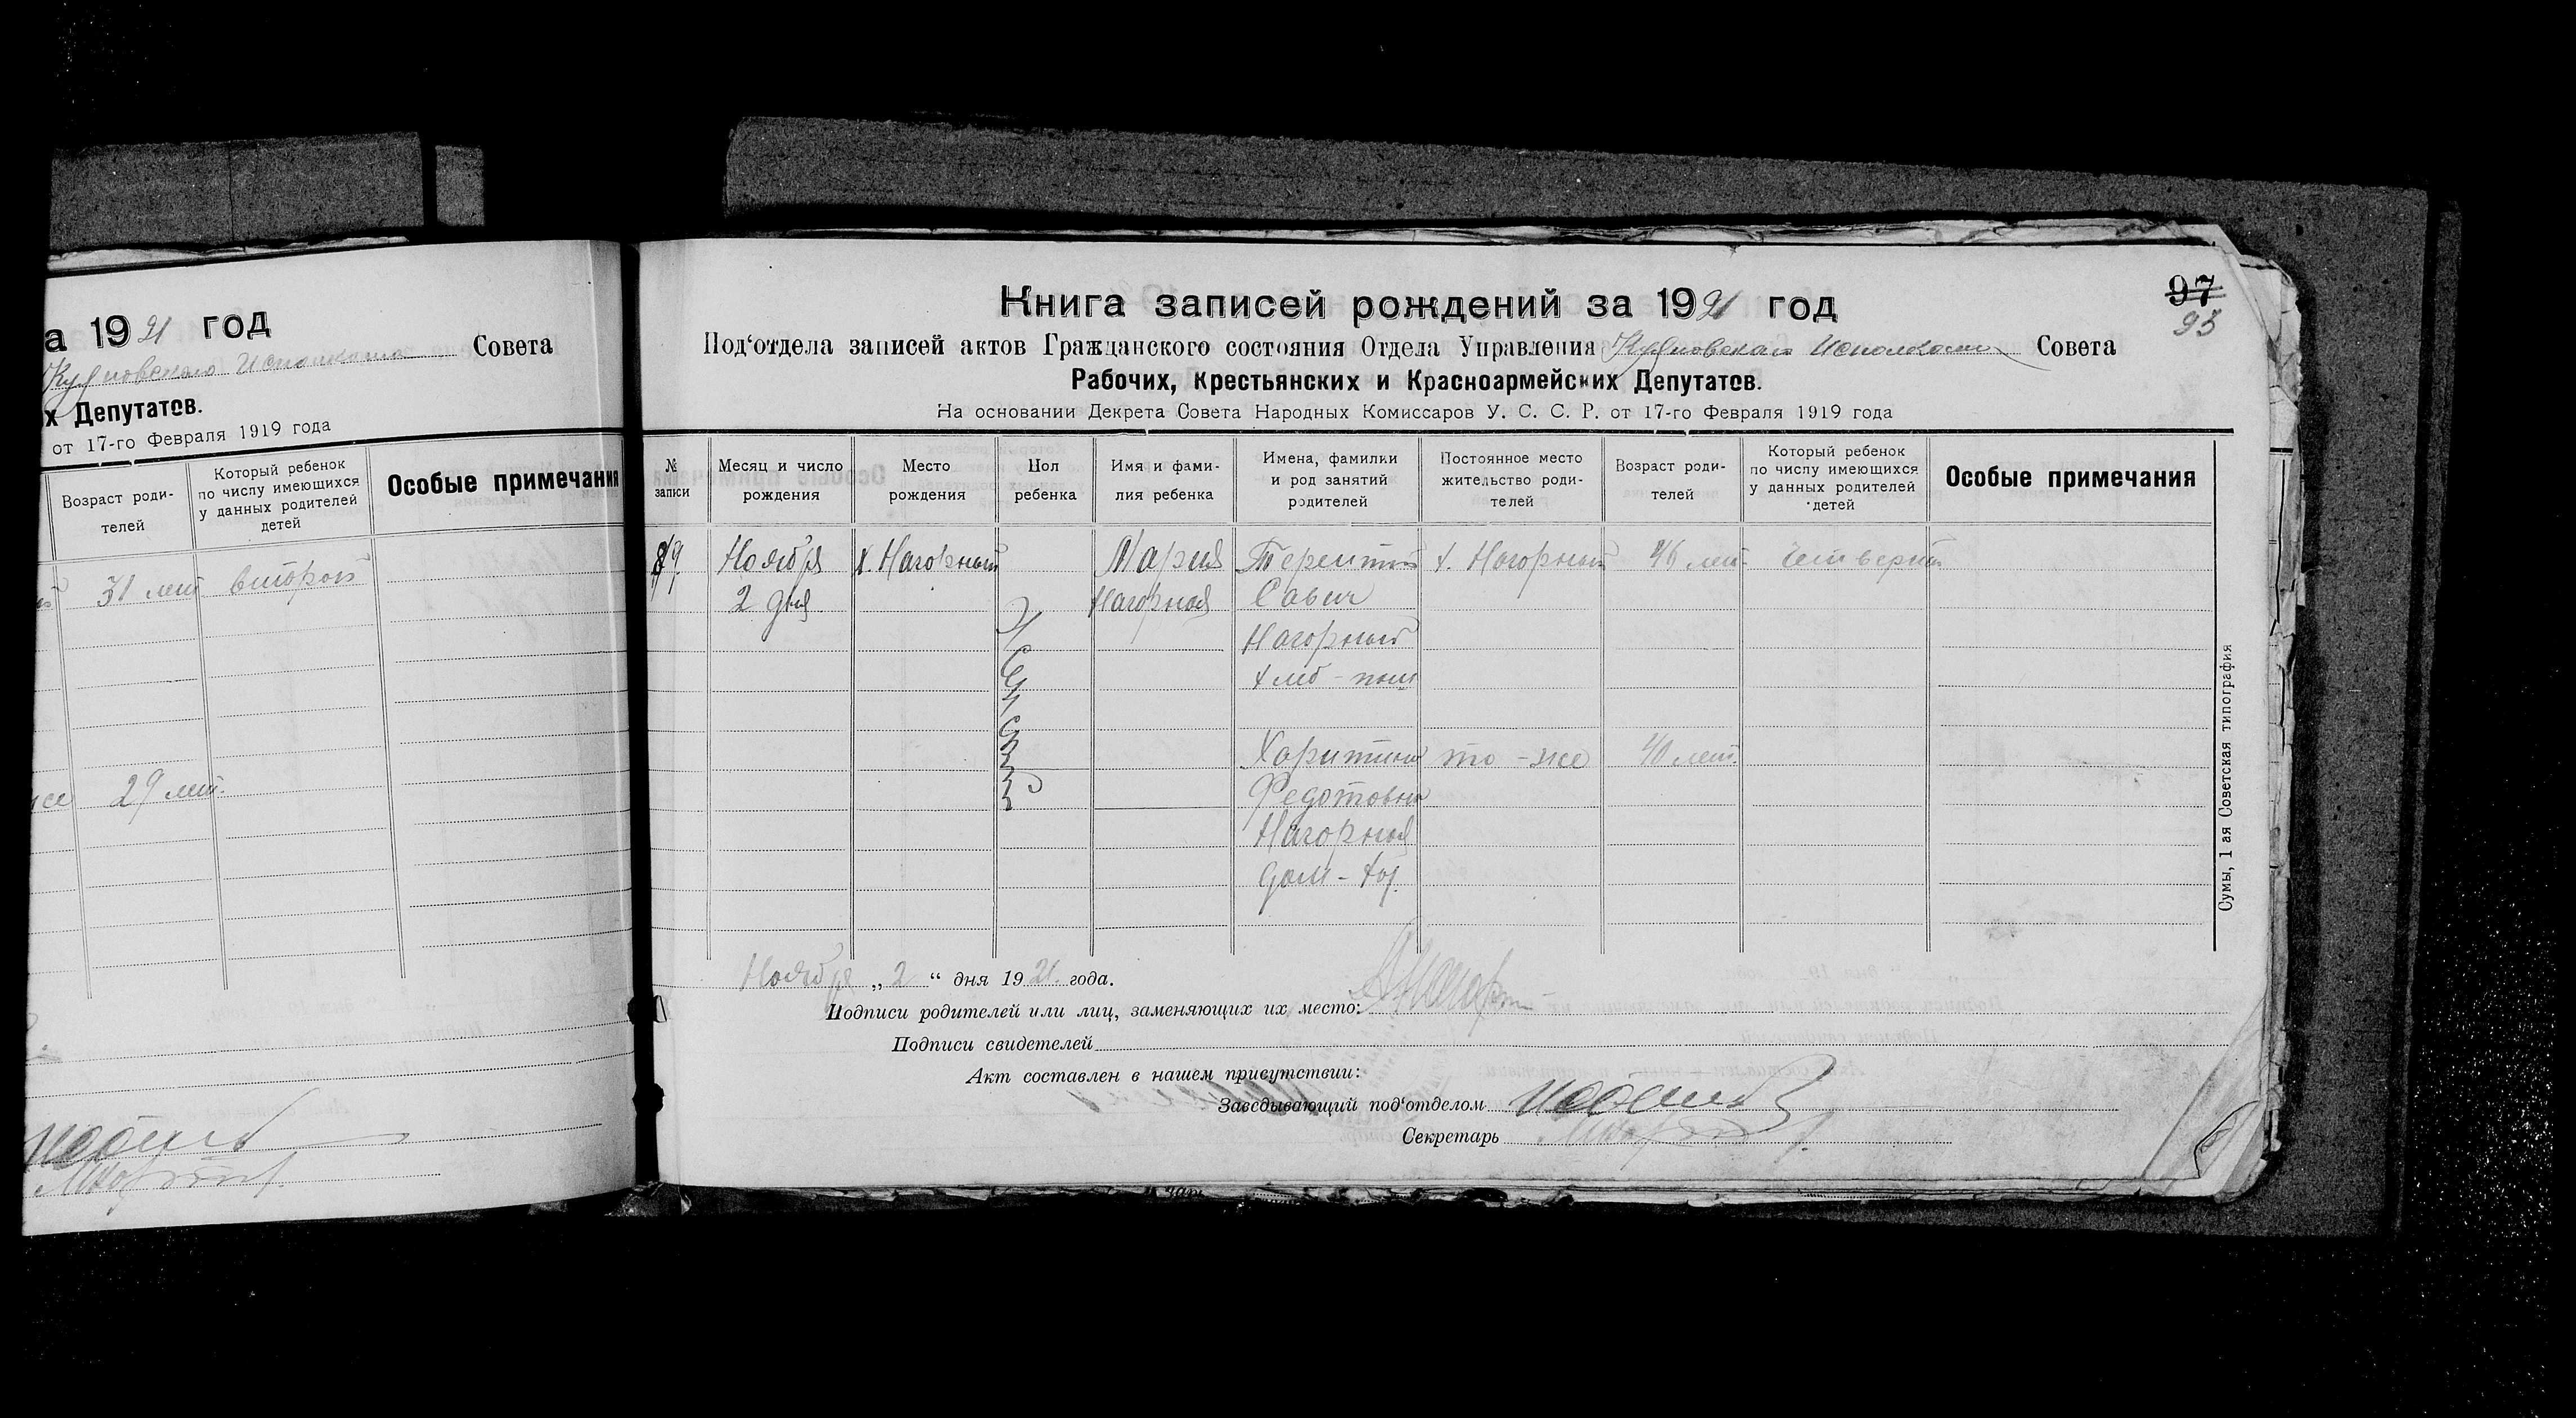 а 1921 год
Совета
х Депутатов.
от 17-го Февраля 1919 года
Возраст роди-
телей
Который ребенок
по числу имеющихся
у данных родителей
детей
Особые примечания
31 лет второй
29 лет.
97
93
Книга записей рождений за 1921 год
Под‘отдела записей актов Гражданского состояния Отдела Управления Исполкома Совета
Рабочих, Крестьянских и Красноармейских Депутатов.
На основании Декрета Совета Народных Комиссаров У. С. С. Р. от 17-го Февраля 1919 года
№
записи
Месяц и число
рождения
Место
рождения
Пол
ребенка
Имя и фами-
лия ребенка
Имена, фамилии
и род занятий
родителей
Постоянное место
жительство роди-
телей
Возраст роди-
телей
Который ребенок
по числу имеющихся
у данных родителей
детей
Особые примечания
Ноября х. Нагорный Мария Терентий х. Нагорный 46 лет четверт
2 дня Нагорная Савич
Нагорный
хлеб-паш
Женский
Харитина то-же 40 лет.
Федотовна
Нагорная
дом-хоз.
Ноября „2“ дня 1921 года.
Подписи родителей или лиц, заменяющих их место:
Подписи свидетелей
Акт составлен в нашем присутствии:
Заведывающий под‘отделом
Секретарь
Сумы, 1 ая Советская типография